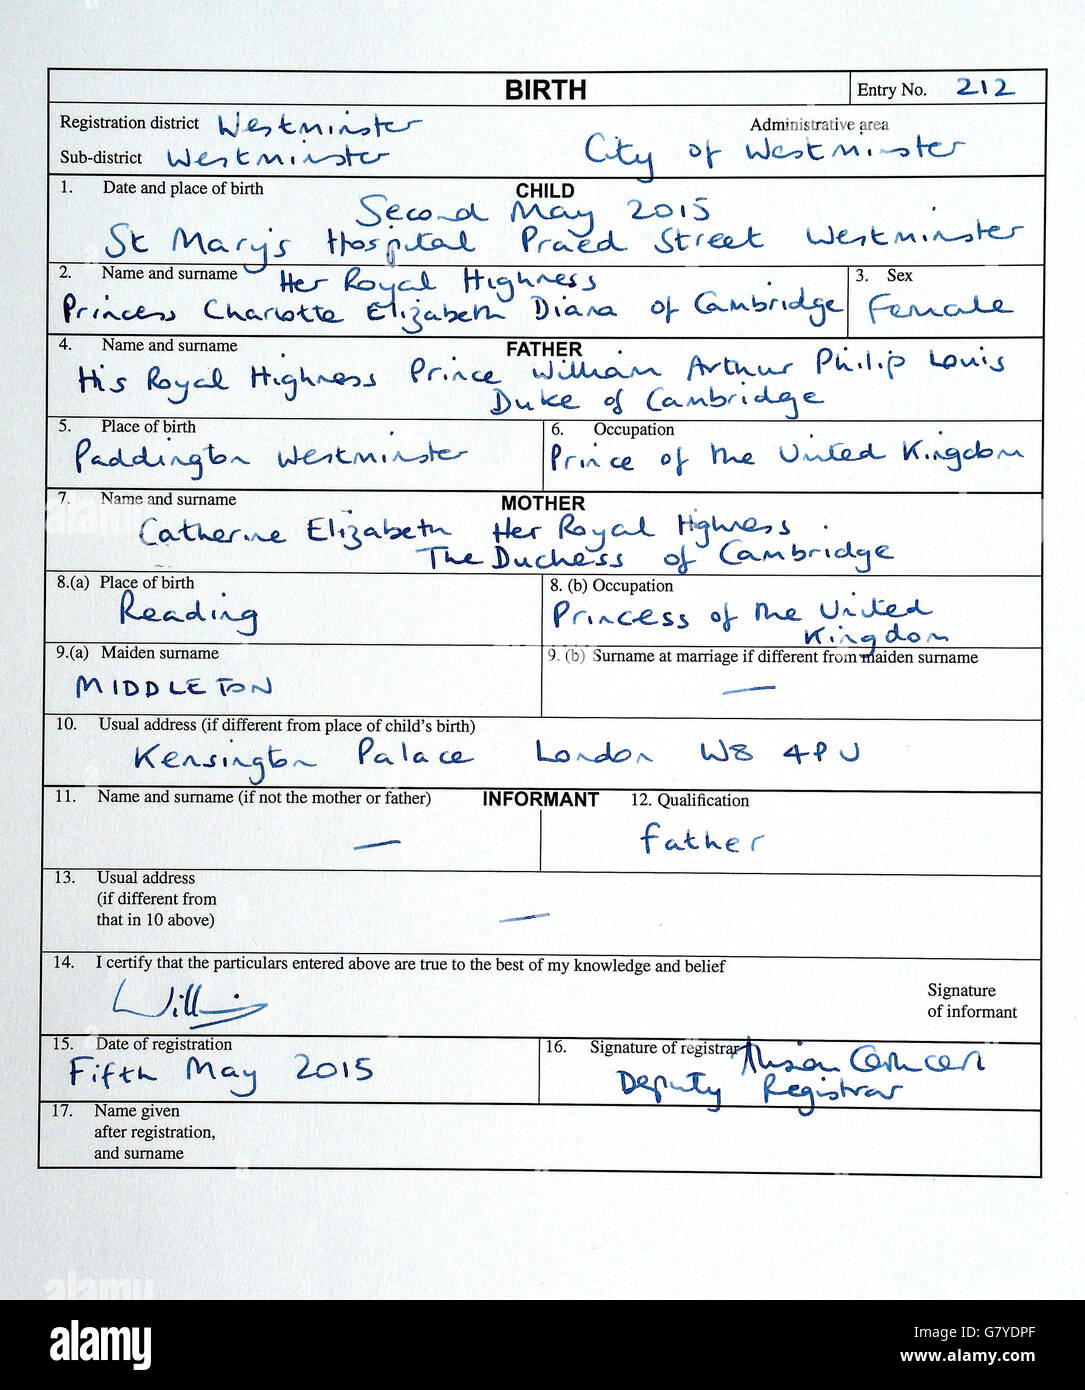 BIRTH Entry No. 212
Registration district Westminster Administrative area
Sub-district Westminster City of Westminster
1. Date and place of birth CHILD
Second May 2015
St Mary's Hospital Praed Street Westminster
2. Name and surname Her Royal Highness 3. Sex
Princess Charlotte Elizabeth Diana of Cambridge Female
4. Name and surname FATHER
His Royal Highness Prince William Arthur Philip Louis
Duke of Cambridge
5. Place of birth 6. Occupation
Paddington Westminster Prince of the United Kingdom
7. Name and surname MOTHER
Catherine Elizabeth Her Royal Highness
The Duchess of Cambridge
8.(a) Place of birth 8. (b) Occupation
Reading Princess of the United
Kingdom
9.(a) Maiden surname 9. (b) Surname at marriage if different from maiden surname
MIDDLETON —
10. Usual address (if different from place of child's birth)
Kensington Palace London W8 4PU
11. Name and surname (if not the mother or father) INFORMANT 12. Qualification
— Father
13. Usual address
(if different from
that in 10 above) —
14. I certify that the particulars entered above are true to the best of my knowledge and belief
William Signature
of informant
15. Date of registration 16. Signature of registrar
Fifth May 2015 Deputy Registrar
17. Name given
after registration,
and surname
alamy
alamy
a
a
alamy Image ID: G7YDPF
www.alamy.com